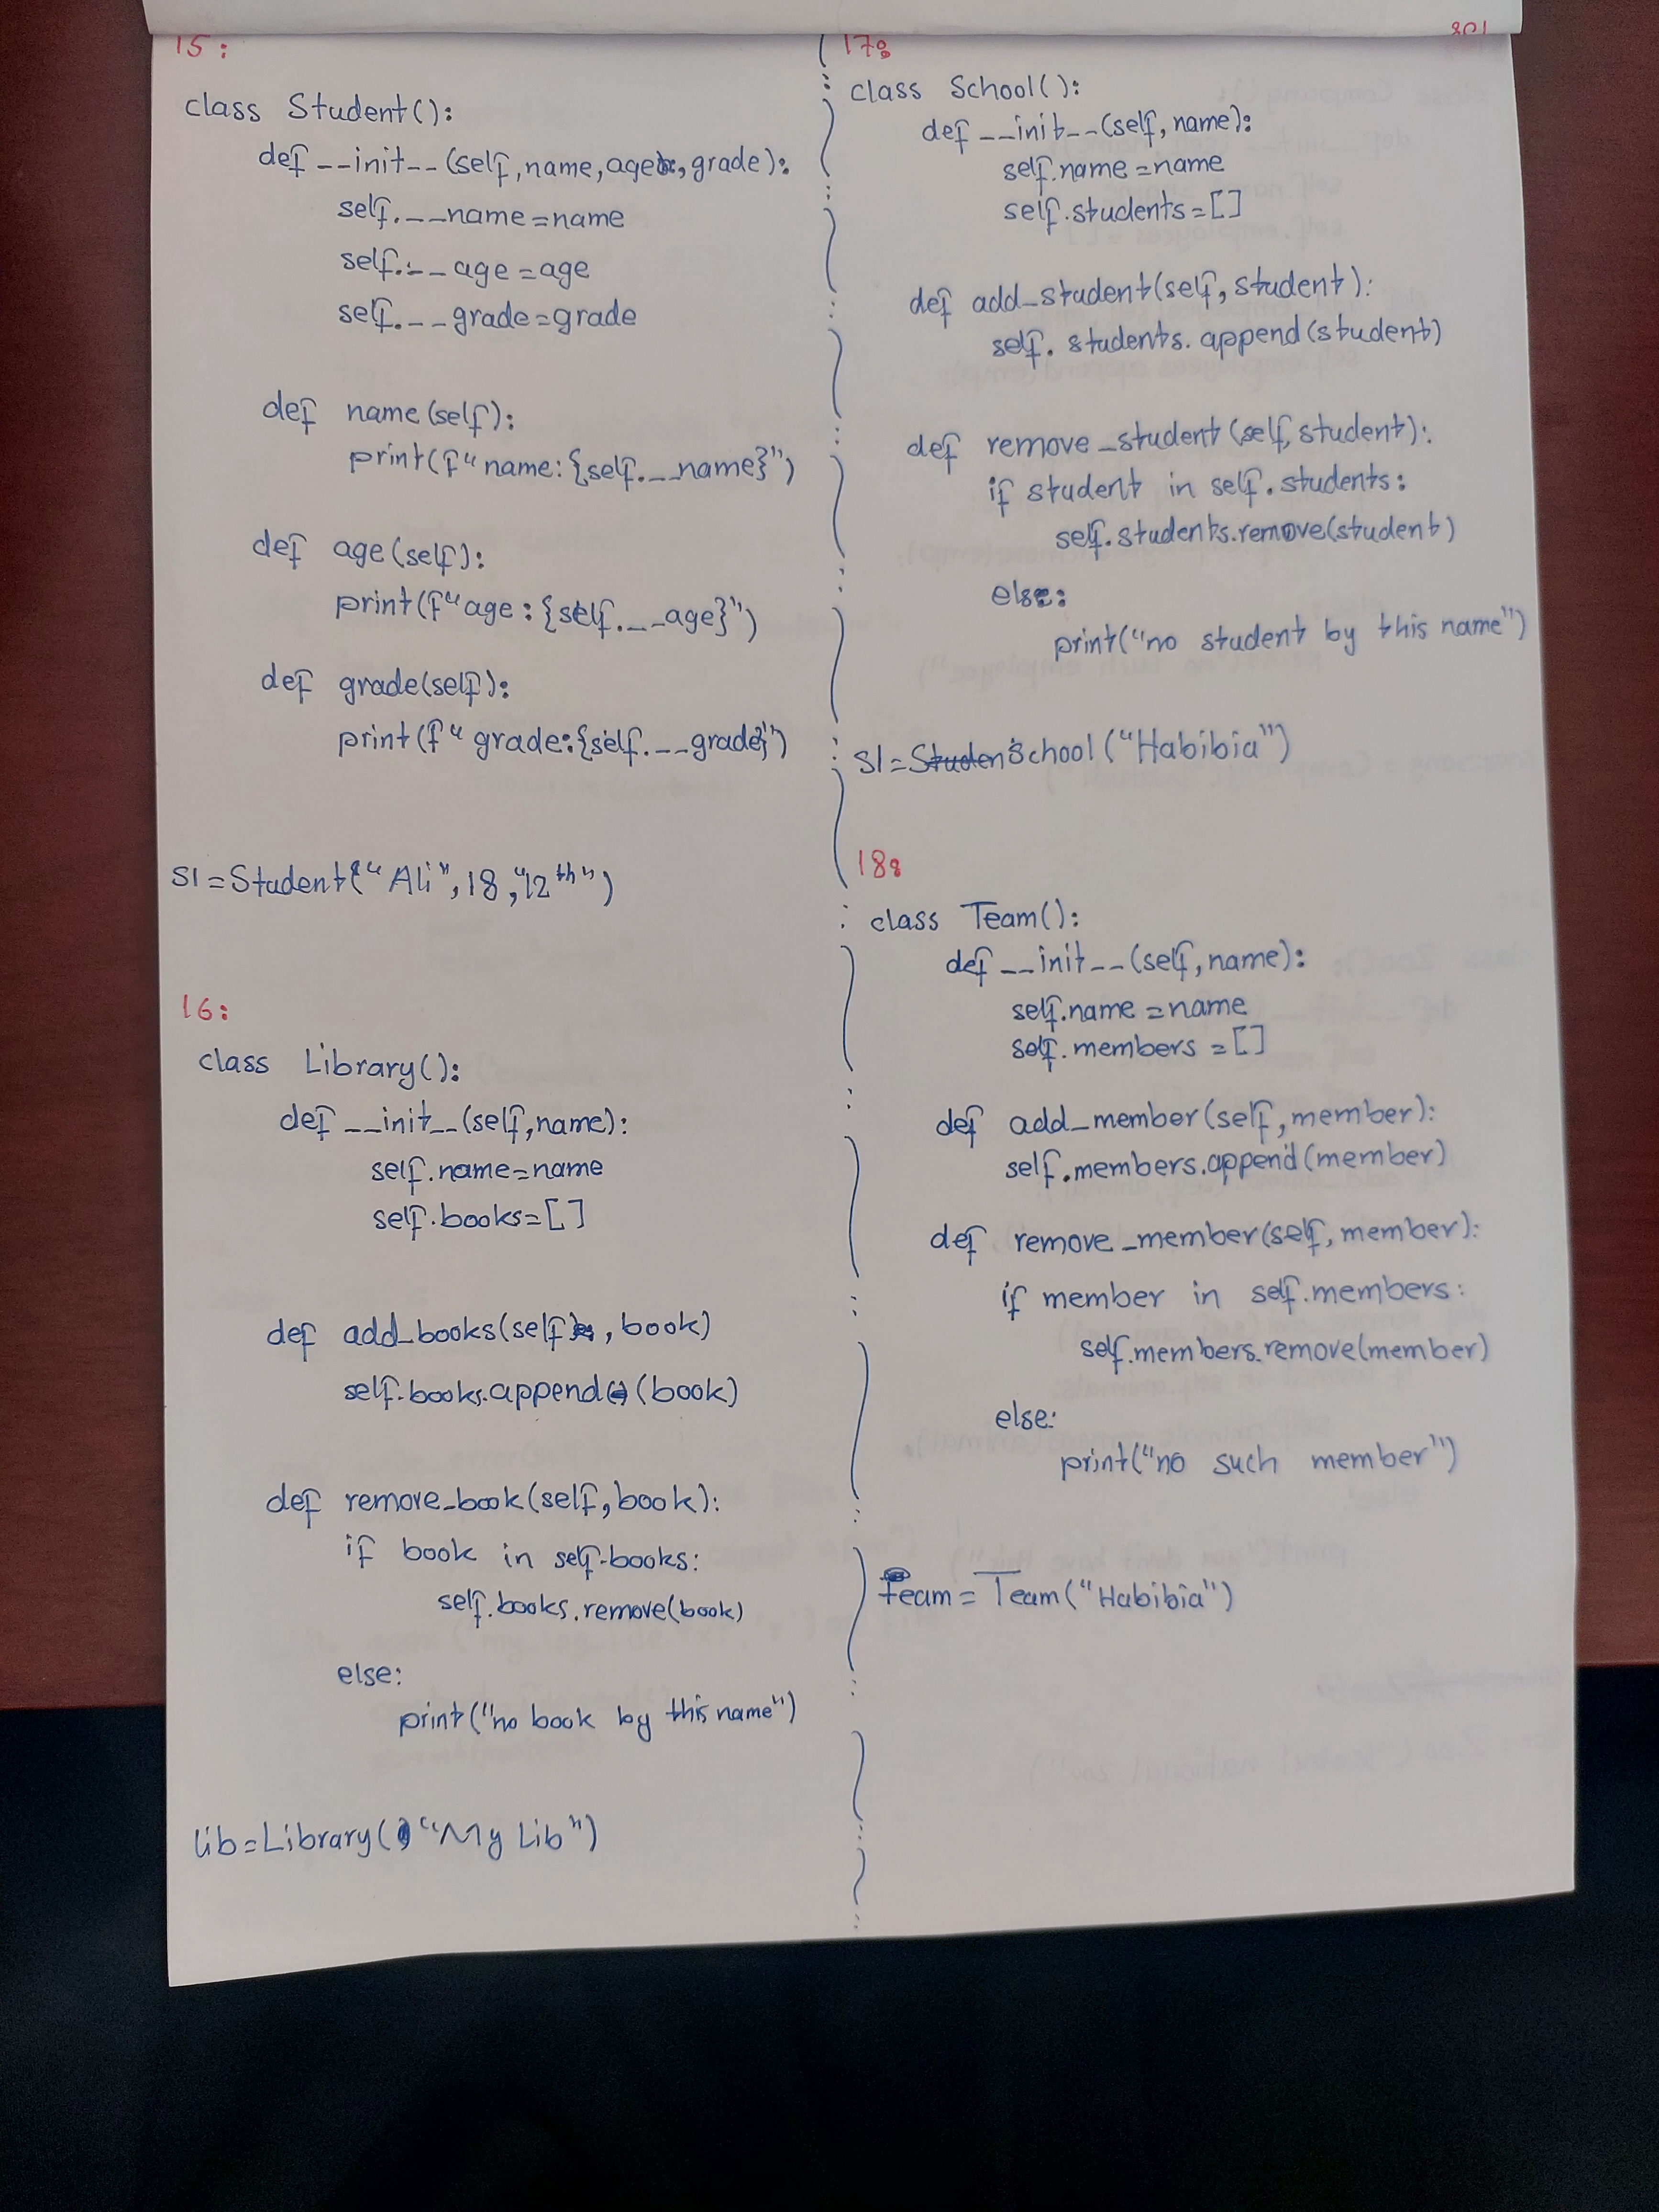 15:
class Student():
def __init__(self,name,age,grade):
self.__name=name
self.__age=age
self.__grade=grade
def name(self):
print(f"name:{self.__name}")
def age(self):
print(f"age:{self.__age}")
def grade(self):
print(f"grade:{self.__grade}")
S1=Student("Ali",18,"12th")
16:
class Library():
def __init__(self,name):
self.name=name
self.books=[]
def add_books(self,book)
self.books.append(book)
def remove_book(self,book):
if book in self.books:
self.books.remove(book)
else:
print("no book by this name")
lib=Library("My Lib")
17:
class School():
def __init__(self,name):
self.name=name
self.students=[]
def add_student(self,student):
self.students.append(student)
def remove_student(self,student):
if student in self.students:
self.students.remove(student)
else:
print("no student by this name")
S1=School("Habibia")
18:
class Team():
def __init__(self,name):
self.name=name
self.members=[]
def add_member(self,member):
self.members.append(member)
def remove_member(self,member):
if member in self.members:
self.members.remove(member)
else:
print("no such member")
team=Team("Habibia")